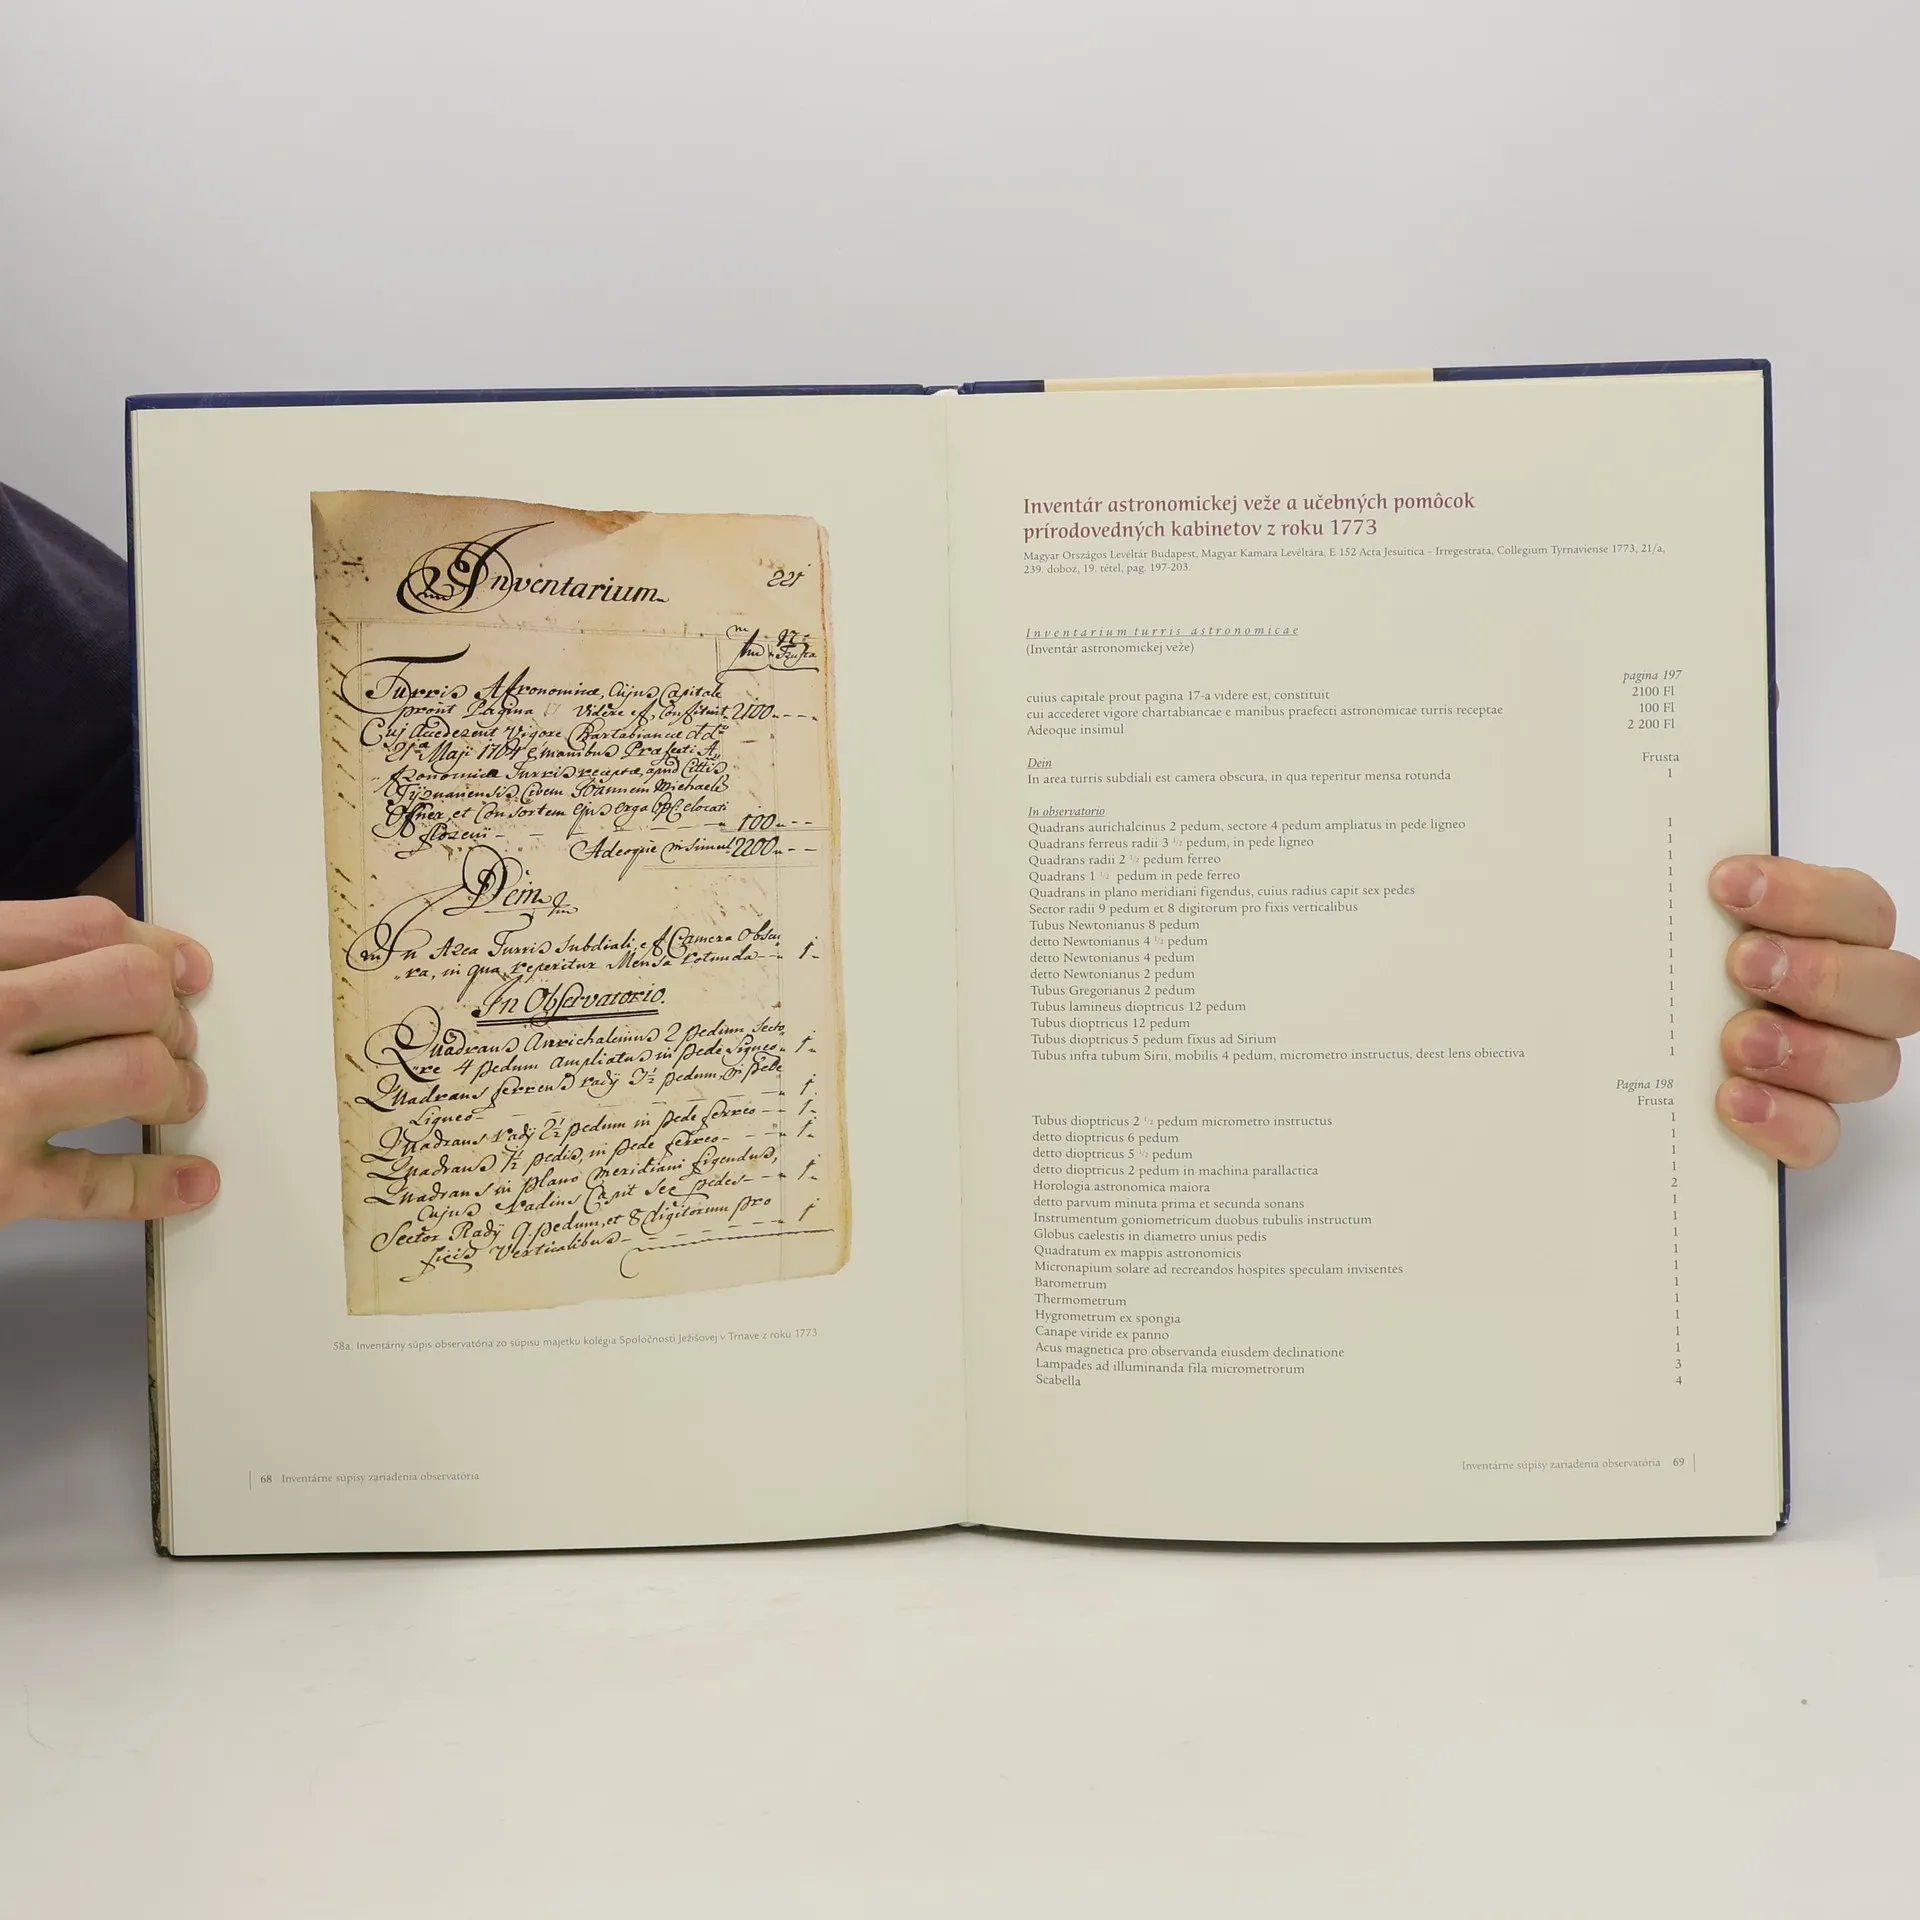 Inventarium
221
m
Frusta
Turris Astronomicæ, Cujus Capitale
prout Pagina 17 Videre est, Constituit 2100
Cui Accederent Vigore Chartabiancæ dd
21a Maji 1764 e manibus Præfecti A
stronomicæ Turris receptæ, apud Cittis
Tyrnaviensis Civem Joannem Michaele
et Consortem Ejus erga elocati
floreni 100
Adeoque insimul 2200
Dein
In Area Turris Subdiali est Camera Obscu
ra, in qua reperitur Mensa rotunda 1
In Observatorio.
Quadrans Aurichalcinus 2 pedum Secto
re 4 pedum Ampliatus in pede Ligneo 1
Quadrans ferreus radij 3½ pedum, in pede
Ligneo 1
Quadrans radij 2½ pedum in pede ferreo 1
Quadrans 1½ pedis, in pede ferreo 1
Quadrans in plano meridiani figendus,
Cujus radius Capit Sex pedes 1
Sector Radij 9 pedum, et 8 digitorum pro
fixis Verticalibus 1
58a. Inventárny súpis observatória zo súpisu majetku kolégia Spoločnosti Ježišovej v Trnave z roku 1773
68 Inventárne súpisy zariadenia observatória
Inventár astronomickej veže a učebných pomôcok
prírodovedných kabinetov z roku 1773
Magyar Országos Levéltár Budapest, Magyar Kamara Levéltára, E 152 Acta Jesuitica – Irregestrata, Collegium Tyrnaviense 1773, 21/a,
239. doboz, 19. tétel, pag. 197-203.
Inventarium turris astronomicae
(Inventár astronomickej veže)
pagina 197
cuius capitale prout pagina 17-a videre est, constituit 2100 Fl
cui accederet vigore chartabiancae e manibus praefecti astronomicae turris receptae 100 Fl
Adeoque insimul 2 200 Fl
Dein Frusta
In area turris subdiali est camera obscura, in qua reperitur mensa rotunda 1
In observatorio
Quadrans aurichalcinus 2 pedum, sectore 4 pedum ampliatus in pede ligneo 1
Quadrans ferreus radii 3 1/2 pedum, in pede ligneo 1
Quadrans radii 2 1/2 pedum ferreo 1
Quadrans 1 1/2 pedum in pede ferreo 1
Quadrans in plano meridiani figendus, cuius radius capit sex pedes 1
Sector radii 9 pedum et 8 digitorum pro fixis verticalibus 1
Tubus Newtonianus 8 pedum 1
detto Newtonianus 4 1/2 pedum 1
detto Newtonianus 4 pedum 1
detto Newtonianus 2 pedum 1
Tubus Gregorianus 2 pedum 1
Tubus lamineus dioptricus 12 pedum 1
Tubus dioptricus 12 pedum 1
Tubus dioptricus 5 pedum fixus ad Sirium 1
Tubus infra tubum Sirii, mobilis 4 pedum, micrometro instructus, deest lens obiectiva 1
Pagina 198
Frusta
Tubus dioptricus 2 1/2 pedum micrometro instructus 1
detto dioptricus 6 pedum 1
detto dioptricus 5 1/2 pedum 1
detto dioptricus 2 pedum in machina parallactica 1
Horologia astronomica maiora 2
detto parvum minuta prima et secunda sonans 1
Instrumentum goniometricum duobus tubulis instructum 1
Globus caelestis in diametro unius pedis 1
Quadratum ex mappis astronomicis 1
Micronapium solare ad recreandos hospites speculam invisentes 1
Barometrum 1
Thermometrum 1
Hygrometrum ex spongia 1
Canape viride ex panno 1
Acus magnetica pro observanda eiusdem declinatione 1
Lampades ad illuminanda fila micrometrorum 3
Scabella 4
Inventárne súpisy zariadenia observatória 69